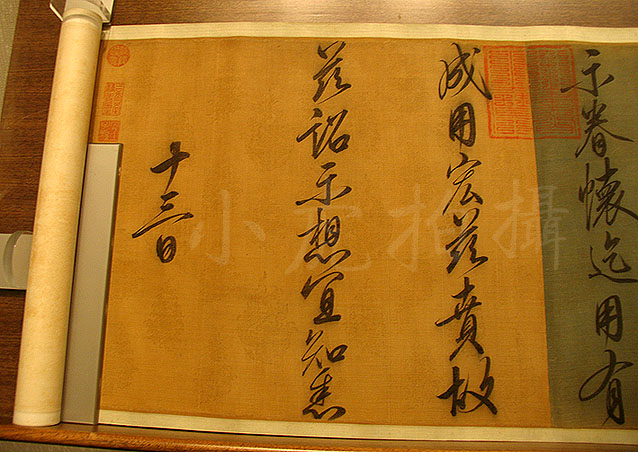 示眷懷迄用有
成用宏茲賁故
茲詔示想宜知悉
十三日
小 拍攝